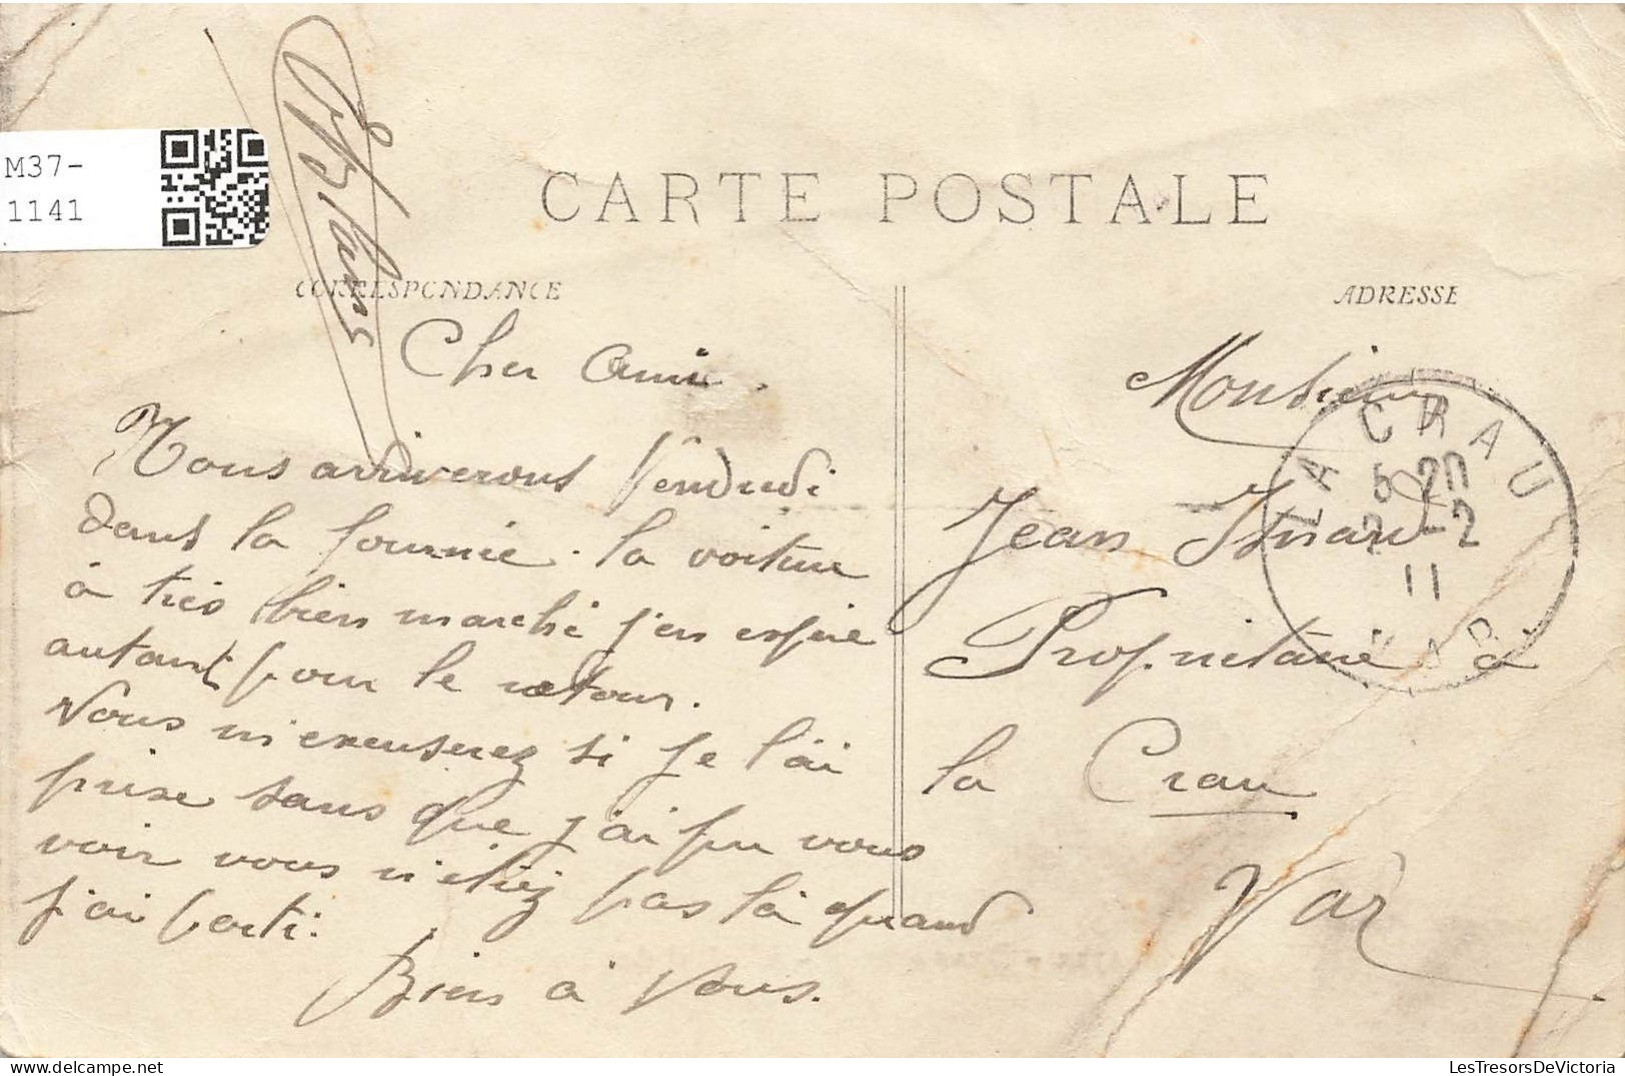 M37-
1141
CARTE POSTALE
CORRESPONDANCE
ADRESSE
Cher Ami.
Nous arriverons Vendredi
dans la journie. la voiture
à tres bien marché j'en espere
autant pour le retour.
Vous m'excuserez si je l'ai
prise sans que j'ai pu vous
voir vous n'étiez pas là quand
j'ai parti.
Bien à vous.
Monsieur
Jean Isnard
Propriétaire à
la Crau
Var
LA CRAU
5 20
2 -2
11
VAR
LesTresorsDeVictoria